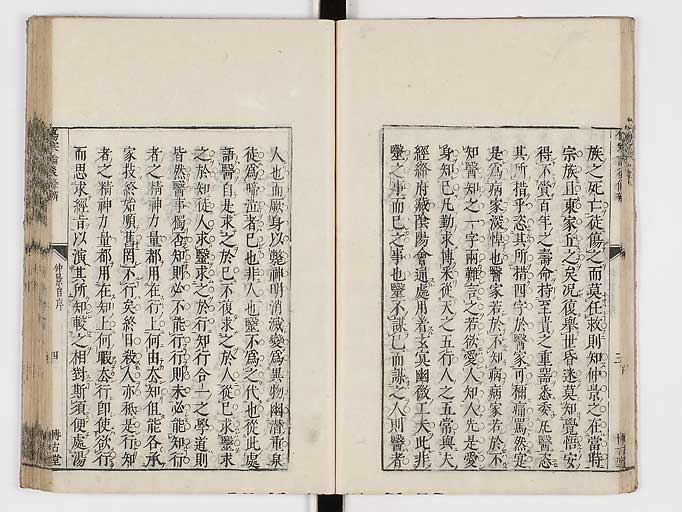 族之死亡徒傷之而莫任救則知仲景之在當時
宗族且東家丘之矣况復舉世昏迷莫知覺悟安
得不賞百年之壽命持至貴之重器悉委凡醫恣
其所措乎恣其所措四字於醫家可稱痛罵然寔
是爲病家
醫知之知一字兩難言之若欲愛人知人先是愛
身知己凡勤求博采從天之五行人之五常與夫
經絡府藏陰陽會通處用着玄冥幽微工夫此非
鑒之事而己之事也鑒不謀己而謀之人則醫者
人也而厥身以斃神明消滅變爲異物幽潛重泉
徒爲啼泣者己也非人也鑒不爲之代也從此處
語醫自是求之於己不復求之於人從己求鑒求
之於知從人求鑒求之於行知行合一之學道則
皆然醫事獨否知則必不能行行則未必能知行
者之精神力量都用在行上何由去知但能各承
家技終始順舊罔不行矣終日殺人亦秪是行知
者之精神力量都用在知上何暇去行即使欲行
而思求經旨以演其所知較之相對斯須便處湯
仲景自序
四
博古堂
三